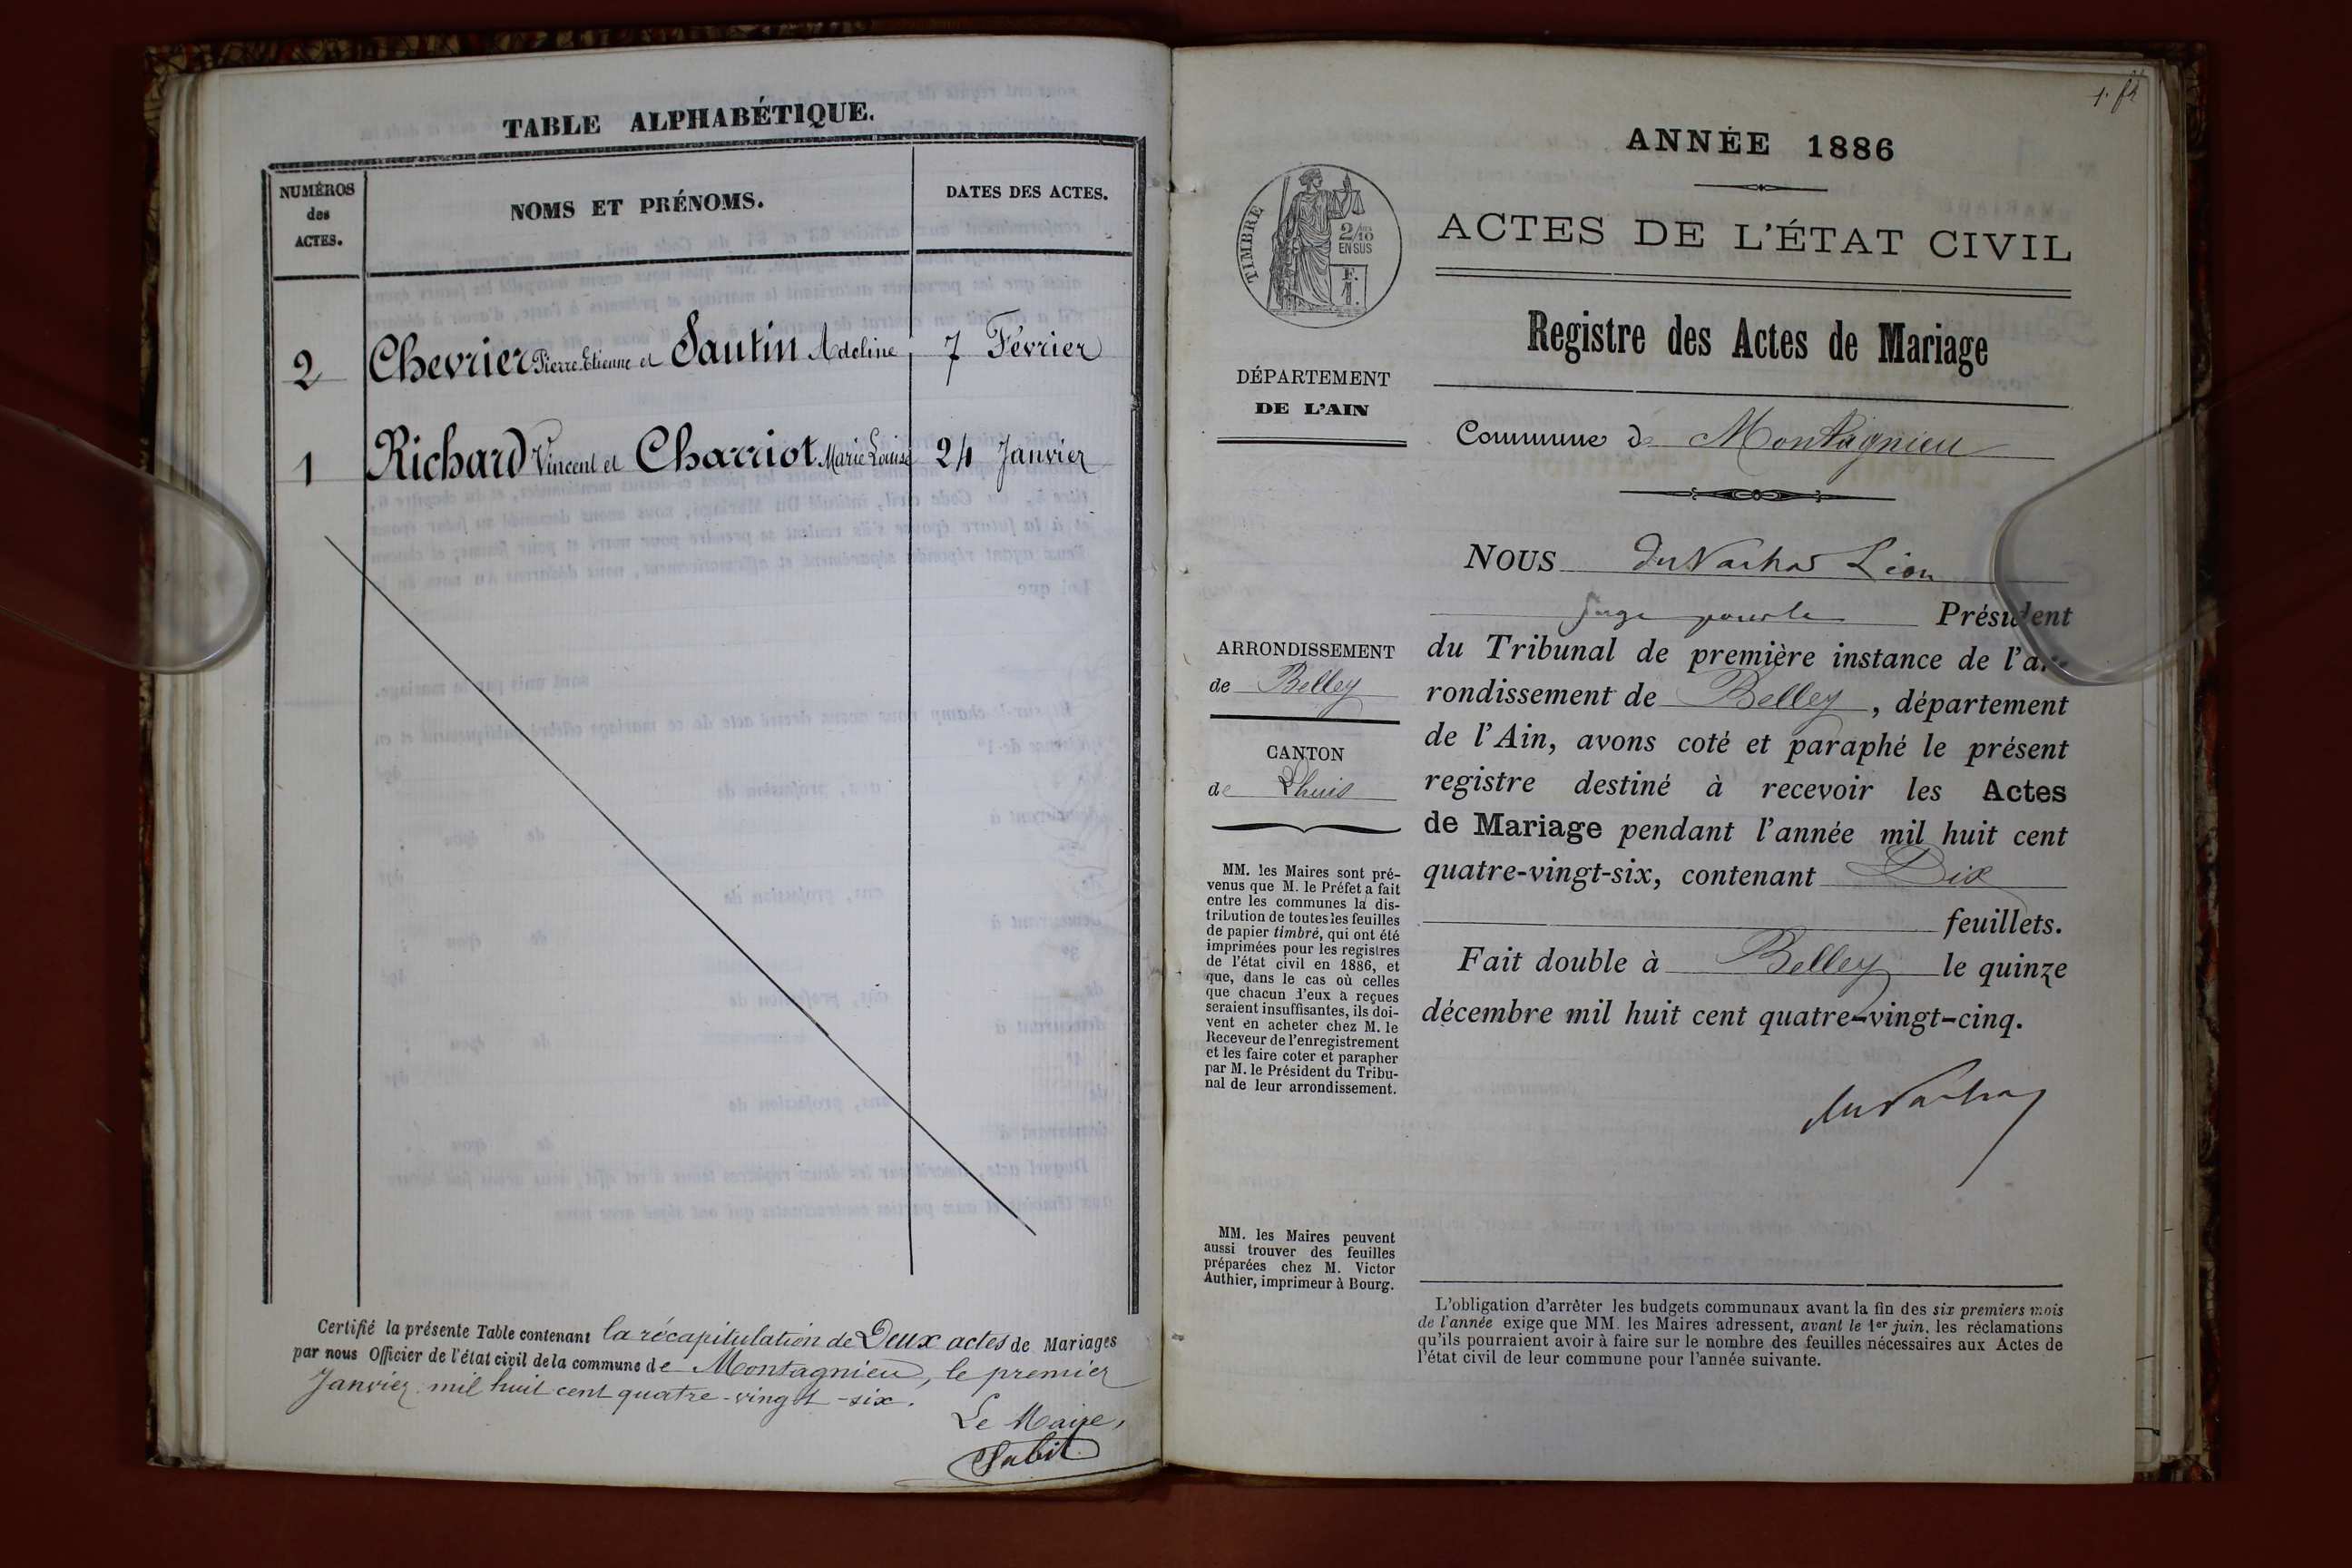 TABLE ALPHABÉTIQUE.
NUMÉROS
des
ACTES.
NOMS ET PRÉNOMS.
DATES DES ACTES.
2 Chevrier Pierre Etienne et Sautin Adeline 7 Février
1 Richard Vincent et Charriot Marie Louise 24 Janvier
Certifié la présente Table contenant la récapitulation de Deux actes de Mariages
par nous Officier de l'état civil de la commune de Montagnieu, le premier
Janvier mil huit cent quatre-vingt-six.
Le Maire,
ANNÉE 1886
TIMBRE
2/10
EN SUS
F.
1.
ACTES DE L'ÉTAT CIVIL
Registre des Actes de Mariage
DÉPARTEMENT
DE L'AIN
Commune de Montagnieu
NOUS Léon
Juge pour le Président
ARRONDISSEMENT
de Belley
CANTON
de Lhuis
du Tribunal de première instance de l'ar-
rondissement de Belley, département
de l'Ain, avons coté et paraphé le présent
registre destiné à recevoir les Actes
de Mariage pendant l'année mil huit cent
quatre-vingt-six, contenant Dix
feuillets.
Fait double à Belley le quinze
décembre mil huit cent quatre-vingt-cinq.
MM. les Maires sont pré-
venus que M. le Préfet a fait
entre les communes la dis-
tribution de toutes les feuilles
de papier timbré, qui ont été
imprimées pour les registres
de l'état civil en 1886, et
que, dans le cas où celles
que chacun d'eux a reçues
seraient insuffisantes, ils doi-
vent en acheter chez M. le
Receveur de l'enregistrement
et les faire coter et parapher
par M. le Président du Tribu-
nal de leur arrondissement.
MM. les Maires peuvent
aussi trouver des feuilles
préparées chez M. Victor
Authier, imprimeur à Bourg.
L'obligation d'arrêter les budgets communaux avant la fin des six premiers mois
de l'année exige que MM. les Maires adressent, avant le 1er juin, les réclamations
qu'ils pourraient avoir à faire sur le nombre des feuilles nécessaires aux Actes de
l'état civil de leur commune pour l'année suivante.